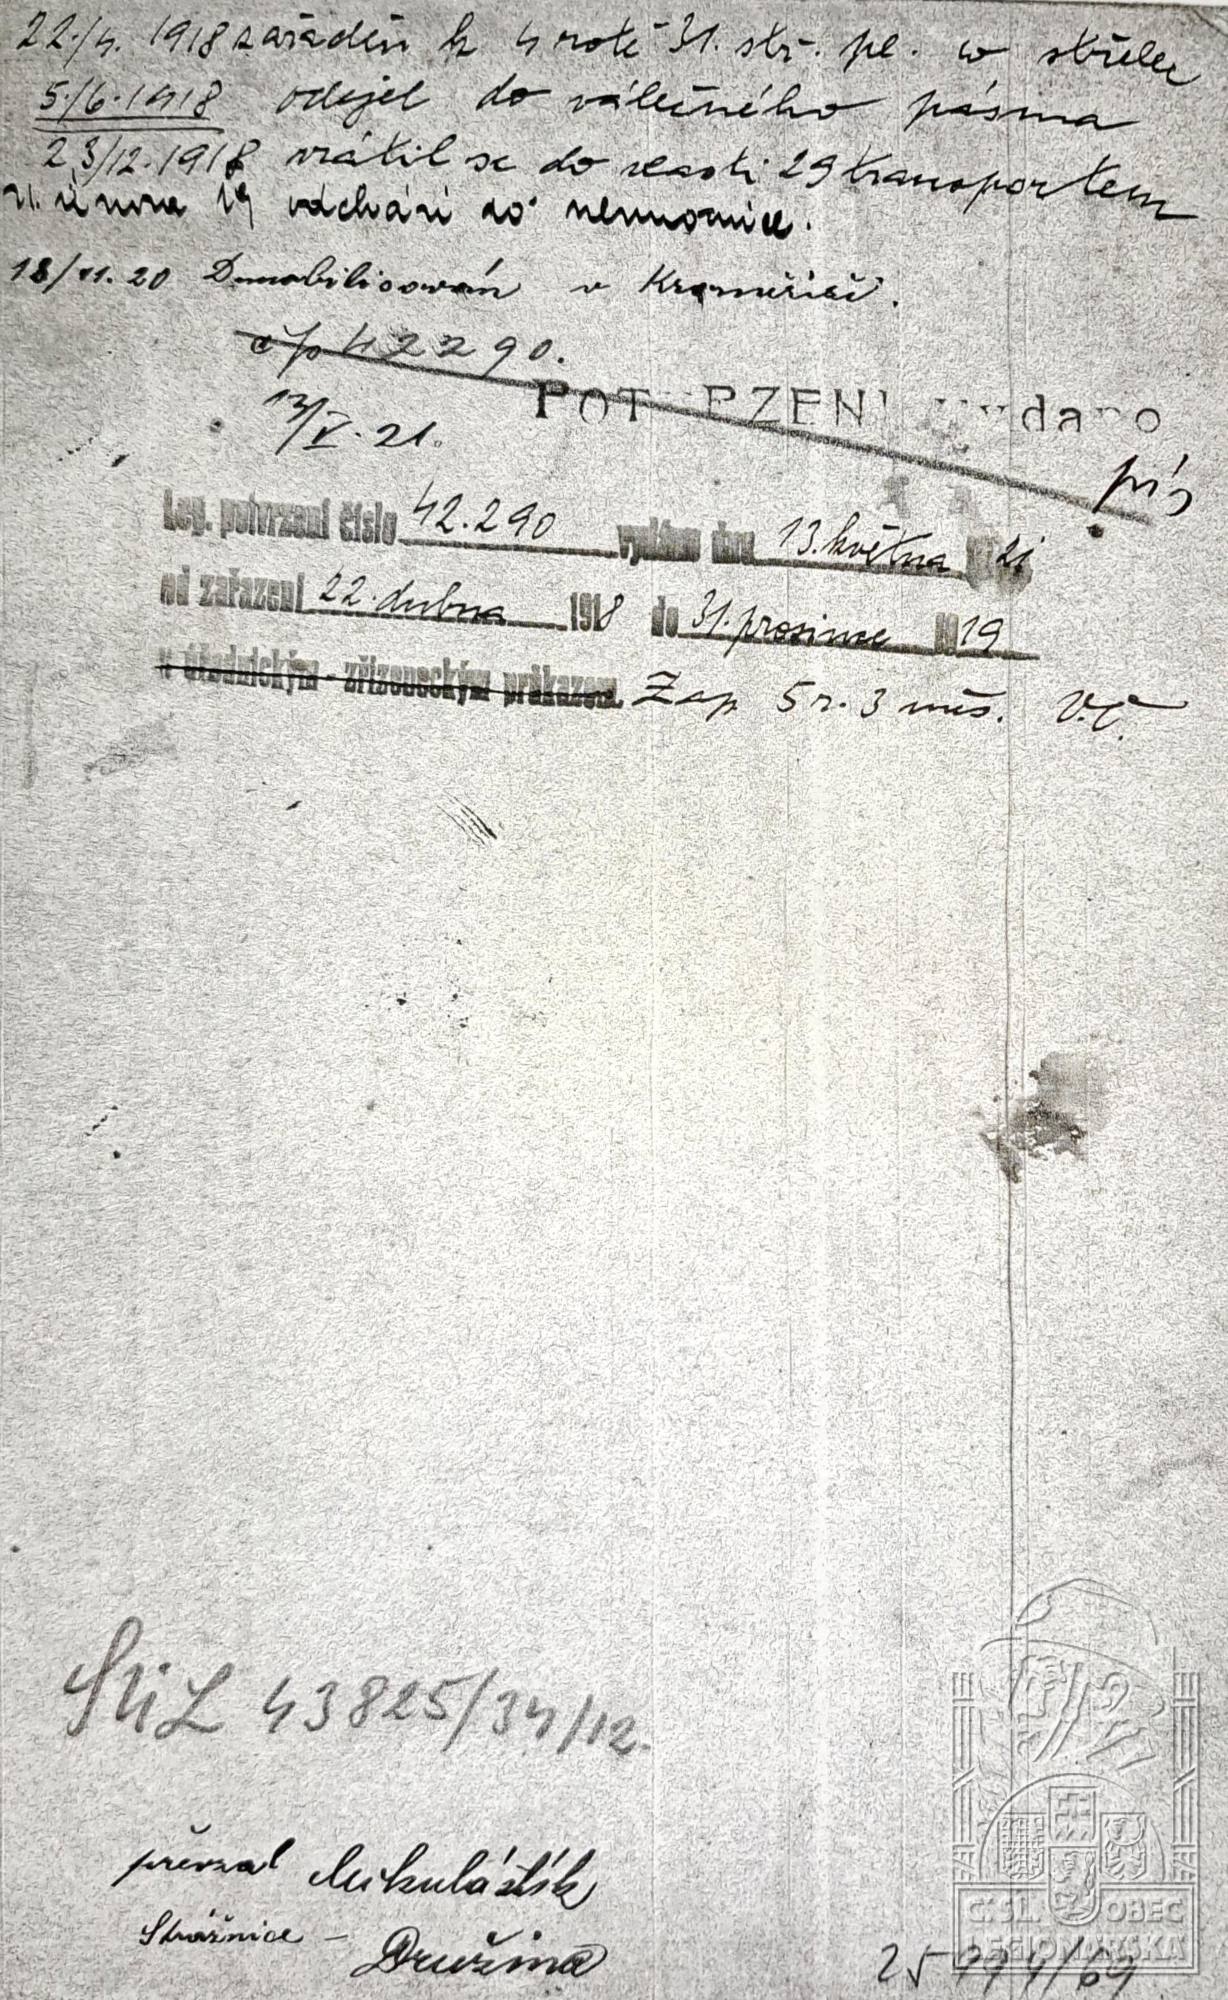 22./4. 1918 zařáděn k 4 rotě 31. stř. pl. w střelec
5./6.1918 odejel do válečného pásma
23/12.1918 vrátil se do vlasti 29 transportem
21. února 19 odchází do nemocnice.
18/VI.20 Demobilisován v Kroměříži.
čp 42290.
POTVRZENÍ vydáno
13/V. 21.
Leg. potvrzení číslo 42.290 vydáno dne 13. května 1921
od zařazení 22. dubna 1918 do 31. prosince 1919
s úřednickým - zřízeneckým průkazem. Zap. 5 r. 3 měs. V.Č.
43825/34/12.
převzal Mikuláštík
Strážnice - Družina
ČSL. OBEC
LEGIONÁŘSKÁ